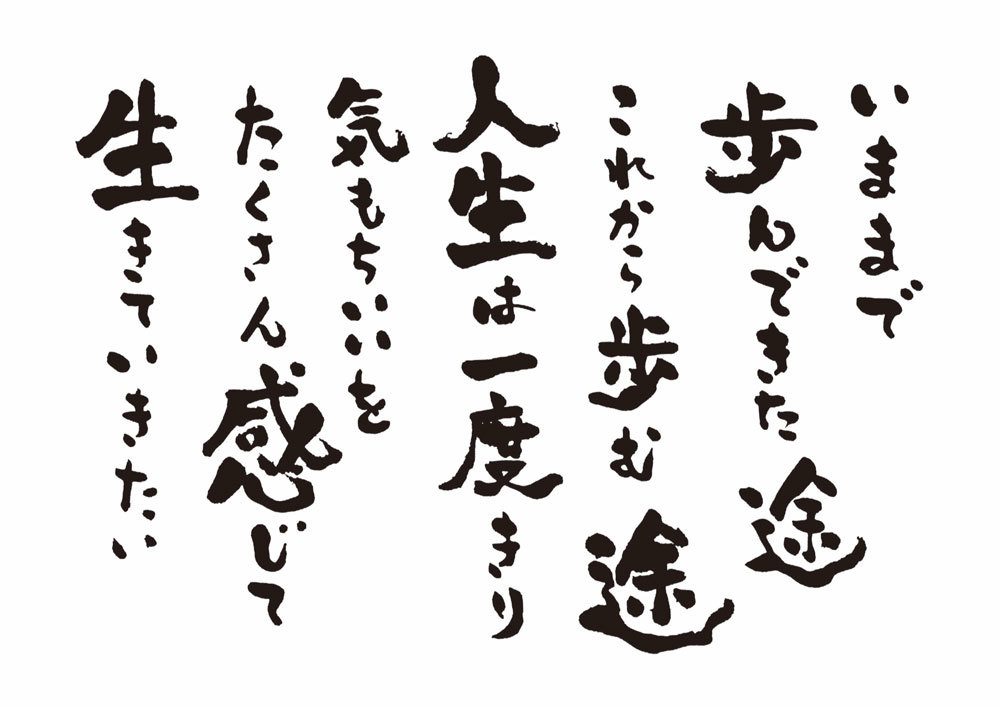 いままで
歩んできた途
これから歩む途
人生は一度きり
気もちいいを
たくさん感じて
生きていきたい